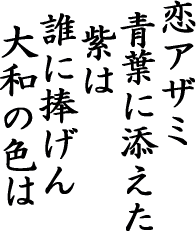 恋アザミ
青葉に添えた
紫は
誰に捧げん
大和の色は